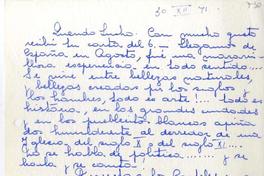 30 XII 71
Querido Lucho. Con mucho gusto
recibí su carta del 6. — Llegamos de
España en Agosto, fué una maravi-
llosa experiencia en todo sentido....
Se vive entre bellezas naturales,
y bellezas creadas por los siglos y
los hombres, todo es arte!... todo es
historia..... en las grandes ciudades
y en los pueblecitos blancos apiña-
dos humildemente al derredor de una
iglesia del siglo X o del siglo XI....
no se habla de política....... y se
habla y se canta!